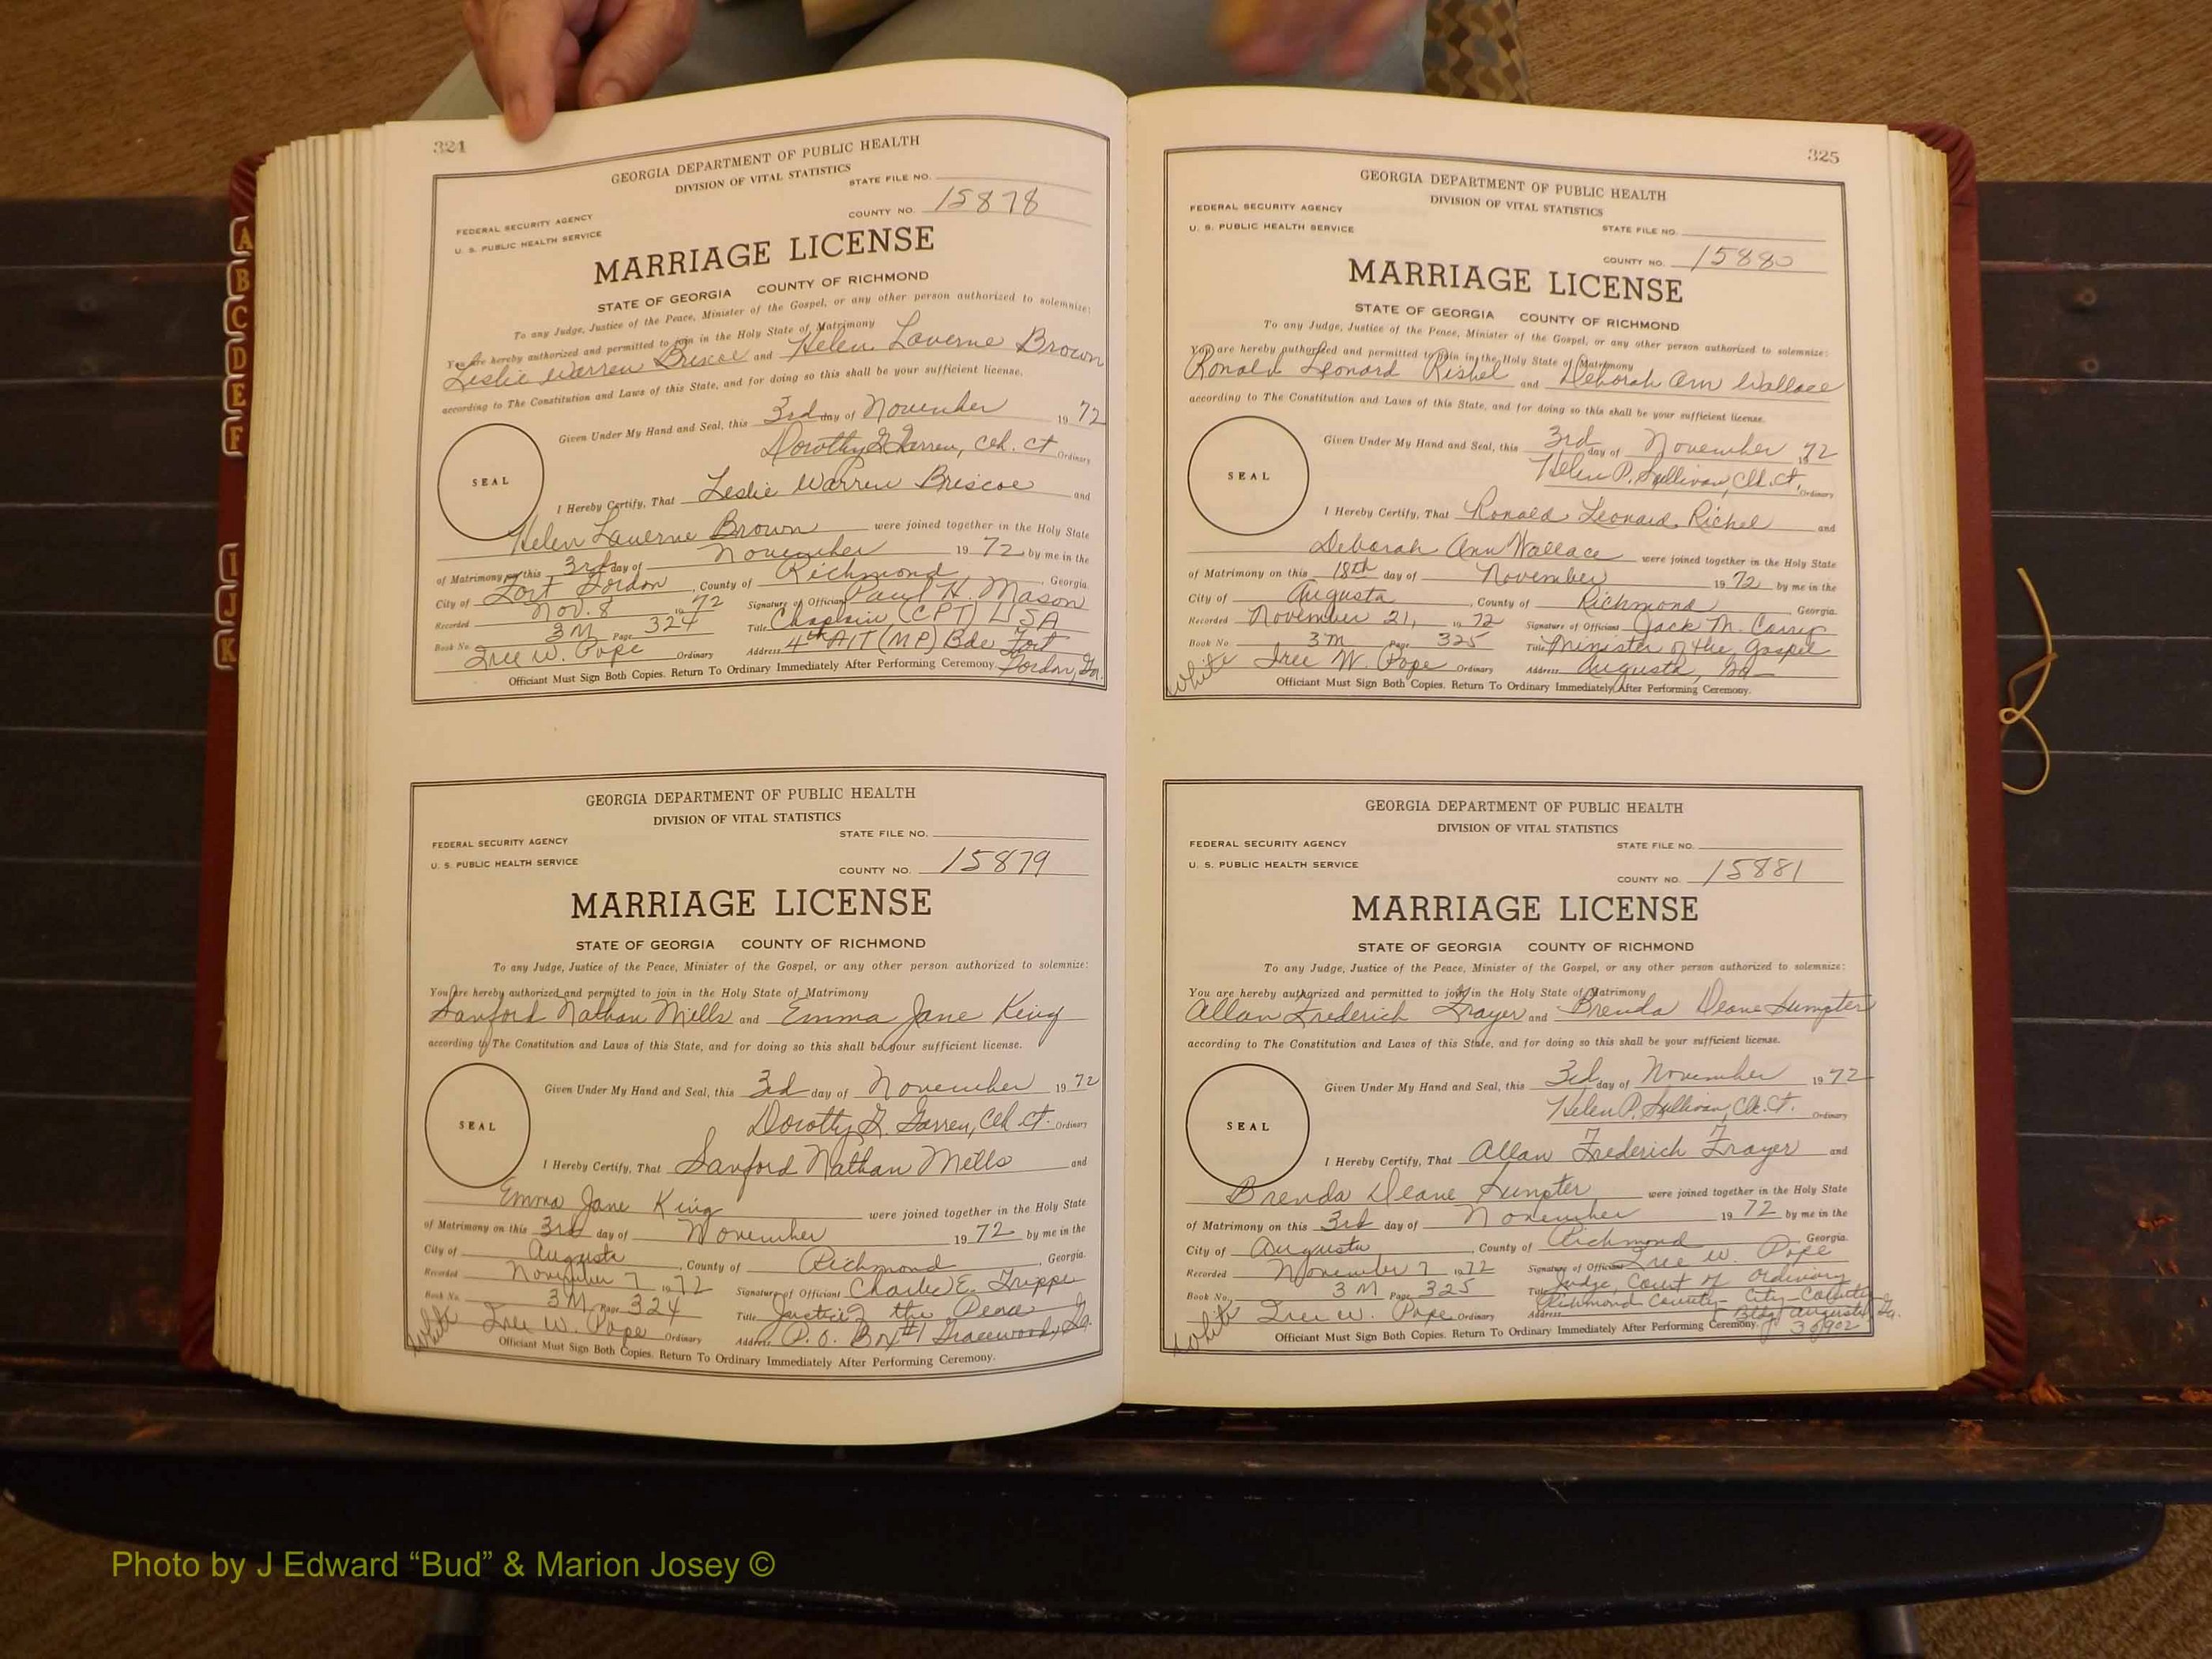 324
GEORGIA DEPARTMENT OF PUBLIC HEALTH
DIVISION OF VITAL STATISTICS
STATE FILE NO.
FEDERAL SECURITY AGENCY
COUNTY NO. 15878
U. S. PUBLIC HEALTH SERVICE
MARRIAGE LICENSE
STATE OF GEORGIA COUNTY OF RICHMOND
To any Judge, Justice of the Peace, Minister of the Gospel, or any other person authorized to solemnize:
You are hereby authorized and permitted to join in the Holy State of Matrimony
Leslie Warren Briscoe and Helen Laverne Brown
according to The Constitution and Laws of this State, and for doing so this shall be your sufficient license.
Given Under My Hand and Seal, this 3rd day of November 1972
Dorothy Ct. Ordinary
SEAL
I Hereby Certify, That Leslie Warren Briscoe and
Helen Laverne Brown were joined together in the Holy State
of Matrimony on this 3rd day of November 1972 by me in the
City of Fort Gordon, County of Richmond, Georgia.
Recorded Nov. 8 1972 Signature of Official Paul H. Mason
Book No. 3M Page 324 Title Chaplain (CPT) USA
Iree W. Pope Ordinary Address 4th AIT (MP) Bde Fort
Officiant Must Sign Both Copies. Return To Ordinary Immediately After Performing Ceremony. Gordon, Ga.
GEORGIA DEPARTMENT OF PUBLIC HEALTH
DIVISION OF VITAL STATISTICS
STATE FILE NO.
FEDERAL SECURITY AGENCY
U. S. PUBLIC HEALTH SERVICE
COUNTY NO. 15879
MARRIAGE LICENSE
STATE OF GEORGIA COUNTY OF RICHMOND
To any Judge, Justice of the Peace, Minister of the Gospel, or any other person authorized to solemnize:
You are hereby authorized and permitted to join in the Holy State of Matrimony
Sanford Nathan Mills and Emma Jane King
according to The Constitution and Laws of this State, and for doing so this shall be your sufficient license.
Given Under My Hand and Seal, this 3rd day of November 1972
Dorothy Ct. Ordinary
SEAL
I Hereby Certify, That Sanford Nathan Mells and
Emma Jane King were joined together in the Holy State
of Matrimony on this 3rd day of November 1972 by me in the
City of Augusta, County of Richmond, Georgia.
Recorded November 7 1972 Signature of Officiant Charles E. Trippe
Book No. 3M Page 324 Title Justice of the Peace
White Iree W. Pope Ordinary Address P. O. Box #1 Gracewood, Ga.
Officiant Must Sign Both Copies. Return To Ordinary Immediately After Performing Ceremony.
325
GEORGIA DEPARTMENT OF PUBLIC HEALTH
DIVISION OF VITAL STATISTICS
FEDERAL SECURITY AGENCY
U. S. PUBLIC HEALTH SERVICE
STATE FILE NO.
COUNTY NO. 15880
MARRIAGE LICENSE
STATE OF GEORGIA COUNTY OF RICHMOND
To any Judge, Justice of the Peace, Minister of the Gospel, or any other person authorized to solemnize:
You are hereby authorized and permitted to join in the Holy State of Matrimony
Ronald Leonard Rishel and Deborah Ann Wallace
according to The Constitution and Laws of this State, and for doing so this shall be your sufficient license.
Given Under My Hand and Seal, this 3rd day of November 1972
Helen P. Sullivan, Clk. Ct. Ordinary
SEAL
I Hereby Certify, That Ronald Leonard Richel and
Deborah Ann Wallace were joined together in the Holy State
of Matrimony on this 18th day of November 1972 by me in the
City of Augusta, County of Richmond Georgia.
Recorded November 21, 1972 Signature of Officiant Jack M.
Book No 3M Page 325 Title Minister of the Gospel
White Iree W. Pope Ordinary Address Augusta, Ga
Officiant Must Sign Both Copies. Return To Ordinary Immediately After Performing Ceremony.
GEORGIA DEPARTMENT OF PUBLIC HEALTH
DIVISION OF VITAL STATISTICS
FEDERAL SECURITY AGENCY
STATE FILE NO.
U. S. PUBLIC HEALTH SERVICE
COUNTY NO. 15881
MARRIAGE LICENSE
STATE OF GEORGIA COUNTY OF RICHMOND
To any Judge, Justice of the Peace, Minister of the Gospel, or any other person authorized to solemnize:
You are hereby authorized and permitted to join in the Holy State of Matrimony
Allan Frederich Frayer and Brenda Deane Sumpter
according to The Constitution and Laws of this State, and for doing so this shall be your sufficient license.
Given Under My Hand and Seal, this 3rd day of November 1972
Helen P. Sullivan, Clk. Ct. Ordinary
SEAL
I Hereby Certify, That Allan Frederich Frayer and
Brenda Deane Sumpter were joined together in the Holy State
of Matrimony on this 3rd day of November 1972 by me in the
City of Augusta, County of Richmond Georgia.
Recorded November 7 1972 Signature of Officiant Iree W. Pope
Book No. 3M Page 325 Title Judge, Court of Ordinary
White Iree W. Pope Ordinary Address Richmond County - City-County
Bldg Augusta, Ga.
Officiant Must Sign Both Copies. Return To Ordinary Immediately After Performing Ceremony. 30902
A
B
C
D
E
F
I
J
K
Photo by J Edward “Bud” & Marion Josey ©